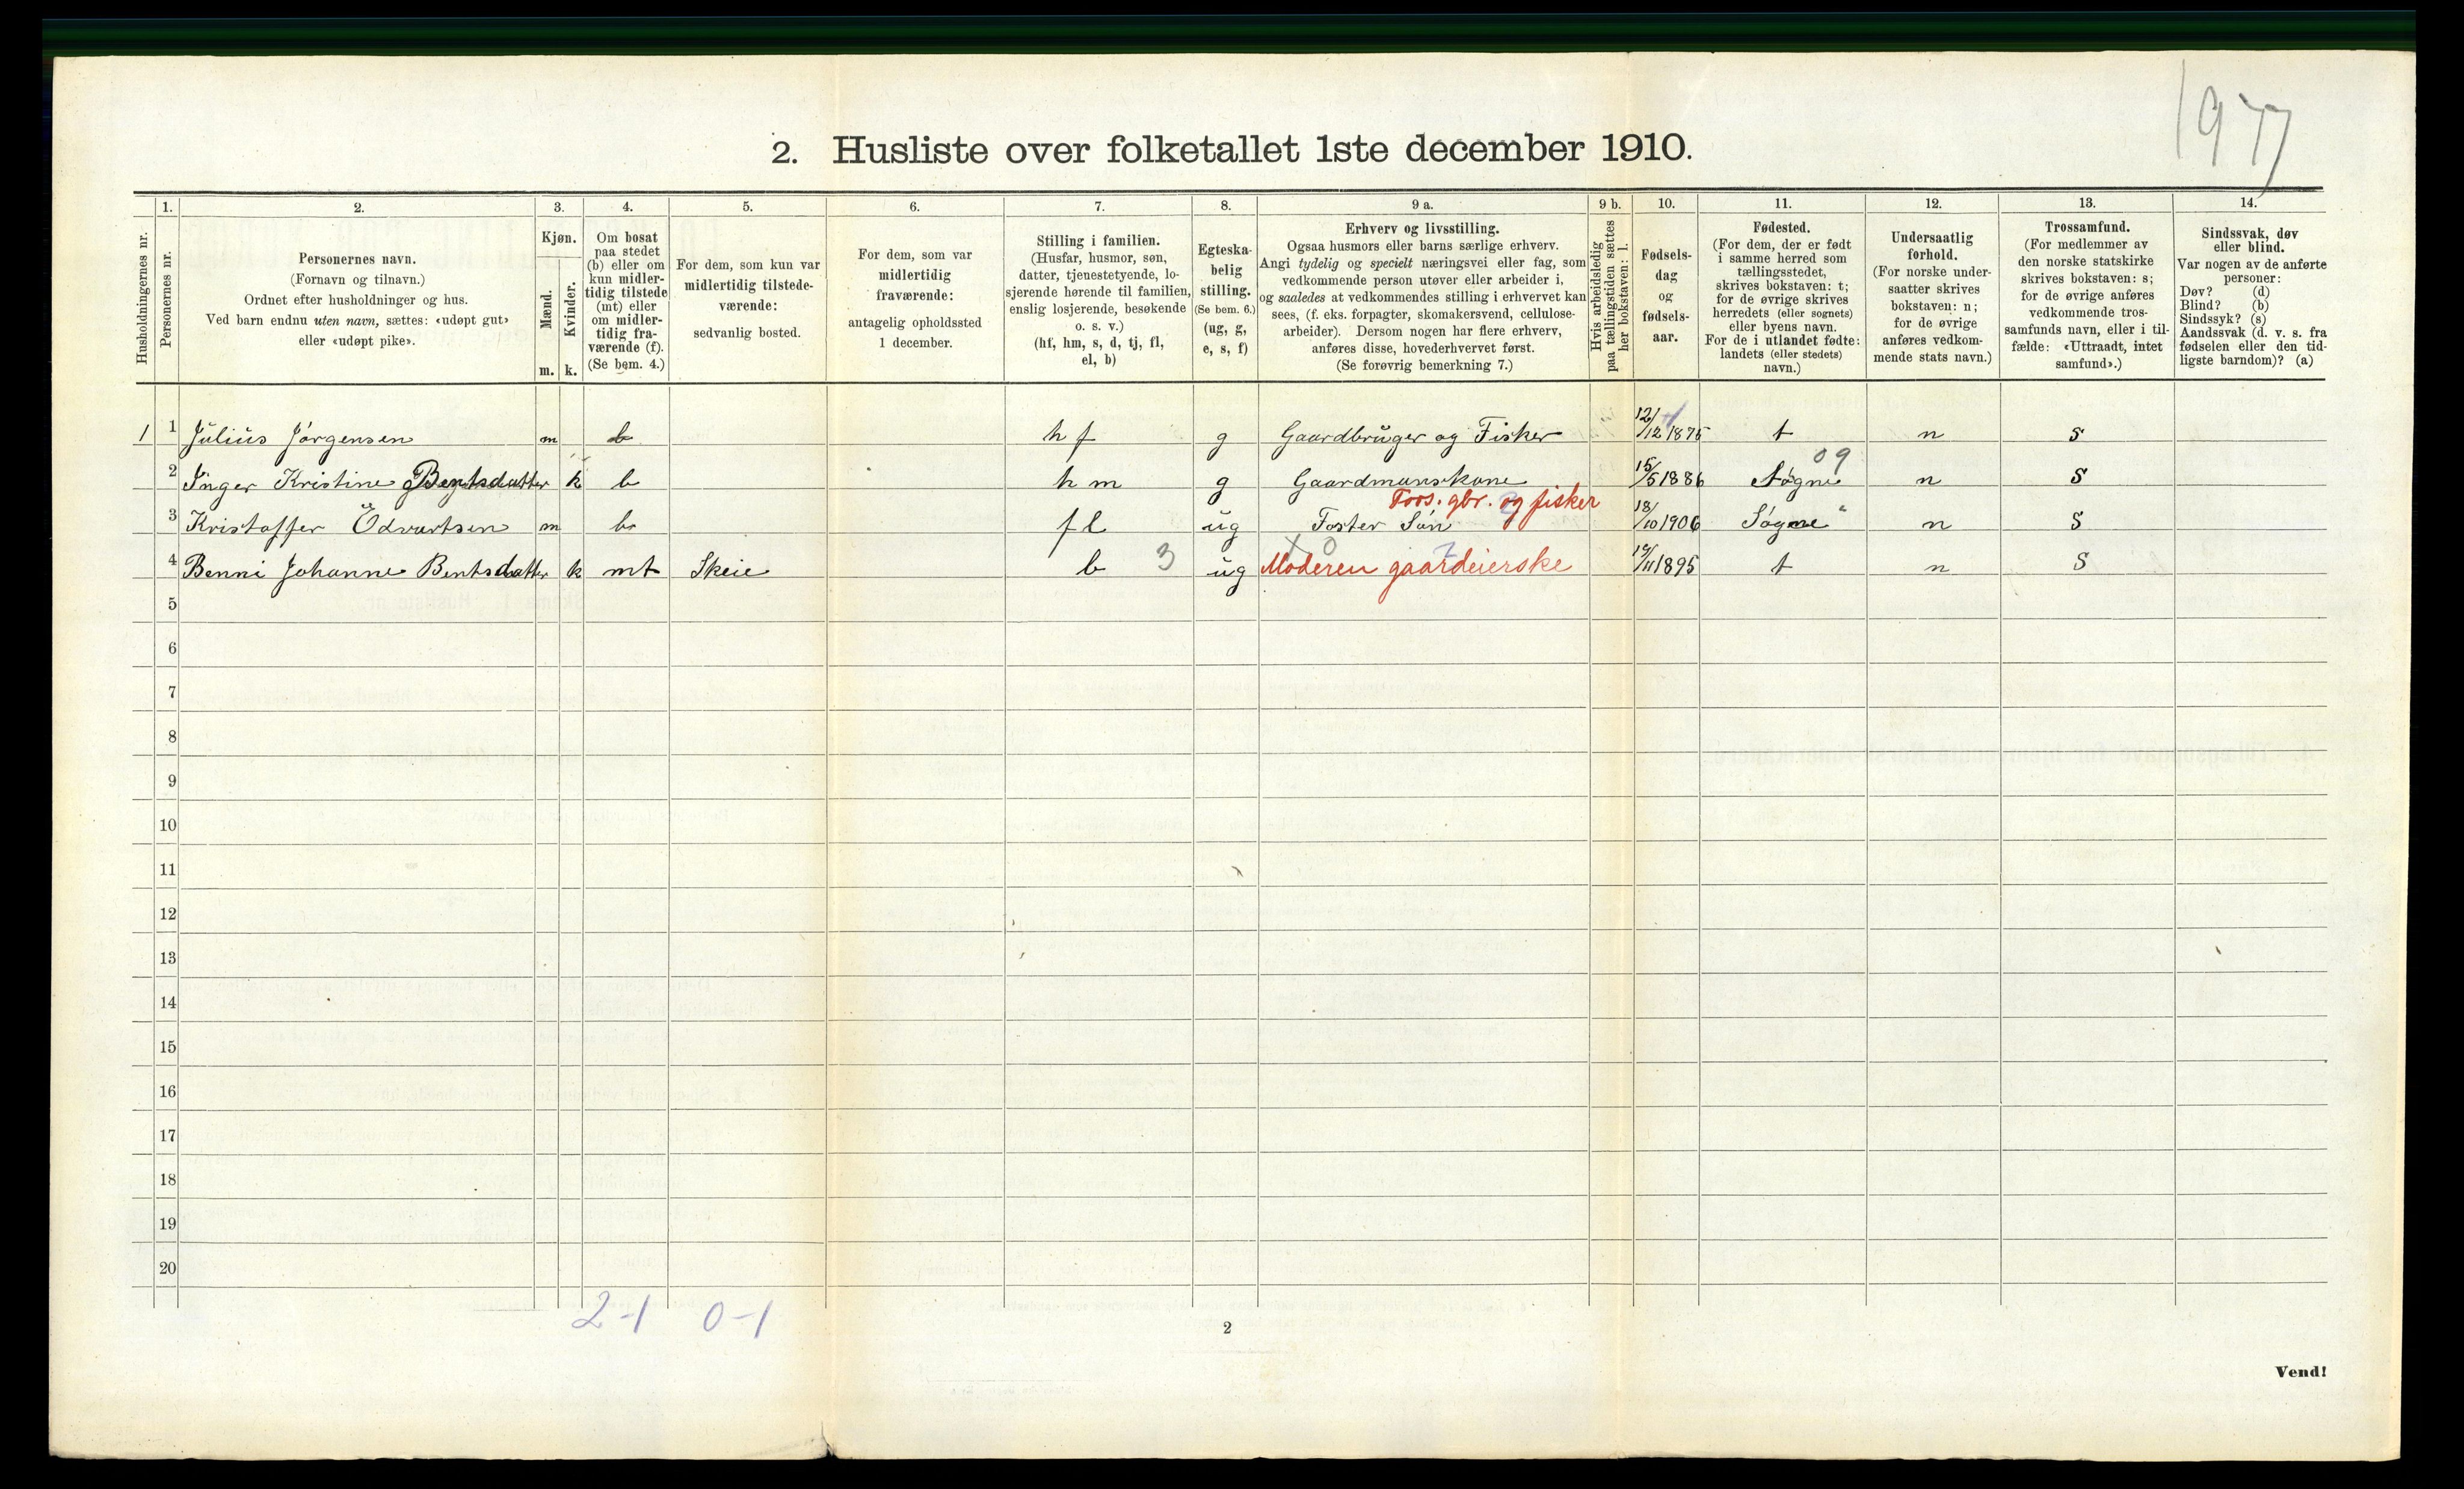 1977
2. Husliste over folketallet 1ste december 1910.
1. 2. 3. 4. 5. 6. 7. 8. 9 a. 9 b. 10. 11. 12. 13. 14.
Husholdningernes nr.
Personernes nr.
Personernes navn.
(Fornavn og tilnavn.)
Ordnet efter husholdninger og hus.
Ved barn endnu uten navn, sættes: «udøpt gut»
eller «udøpt pike».
Kjøn.
Mænd.
Kvinder.
m. k.
Om bosat
paa stedet
(b) eller om
kun midler-
tidig tilstede
(mt) eller
om midler-
tidig fra-
værende (f).
(Se bem. 4.)
For dem, som kun var
midlertidig tilstede-
værende:
sedvanlig bosted.
For dem, som var
midlertidig
fraværende:
antagelig opholdssted
1 december.
Stilling i familien.
(Husfar, husmor, søn,
datter, tjenestetyende, lo-
sjerende hørende til familien,
enslig losjerende, besøkende
o. s. v.)
(hf, hm, s, d, tj, fl,
el, b)
Egteska-
belig
stilling.
(Se bem. 6.)
(ug, g,
e, s, f)
Erhverv og livsstilling.
Ogsaa husmors eller barns særlige erhverv.
Angi tydelig og specielt næringsvei eller fag, som
vedkommende person utøver eller arbeider i,
og saaledes at vedkommendes stilling i erhvervet kan
sees, (f. eks. forpagter, skomakersvend, cellulose-
arbeider). Dersom nogen har flere erhverv,
anføres disse, hovederhvervet først.
(Se forøvrig bemerkning 7.)
Hvis arbeidsledig
paa tællingstiden sættes
her bokstaven: l.
Fødsels-
dag
og
fødsels-
aar.
Fødested.
(For dem, der er født
i samme herred som
tællingsstedet,
skrives bokstaven: t;
for de øvrige skrives
herredets (eller sognets)
eller byens navn.
For de i utlandet fødte:
landets (eller stedets)
navn.)
Undersaatlig
forhold.
(For norske under-
saatter skrives
bokstaven: n;
for de øvrige
anføres vedkom-
mende stats navn.)
Trossamfund.
(For medlemmer av
den norske statskirke
skrives bokstaven: s;
for de øvrige anføres
vedkommende tros-
samfunds navn, eller i til-
fælde: «Uttraadt, intet
samfund».)
Sindssvak, døv
eller blind.
Var nogen av de anførte
personer:
Døv? (d)
Blind? (b)
Sindssyk? (s)
Aandssvak (d. v. s. fra
fødselen eller den tid-
ligste barndom)? (a)
1 1 Julius Jørgensen m b h f g Gaardbruger og Fisker 12/12 1875 t n s
09
2 Inger Kristine Bentsdatter k b h m g Gaardmanskone 15/5 1886 Søgne n s
Fors. gbr. og fisker
3 Kristoffer Edvartsen m b f l ug Foster Søn 18/10 1906 Søgne n s
4 Benni Johanne Bentsdatter k mt Skeie b 3 ug Moderen gaardeierske 19/11 1895 t n s
5
6
7
8
9
10
11
12
13
14
15
16
17
18
19
20
2-1 0-1
2
Vend!